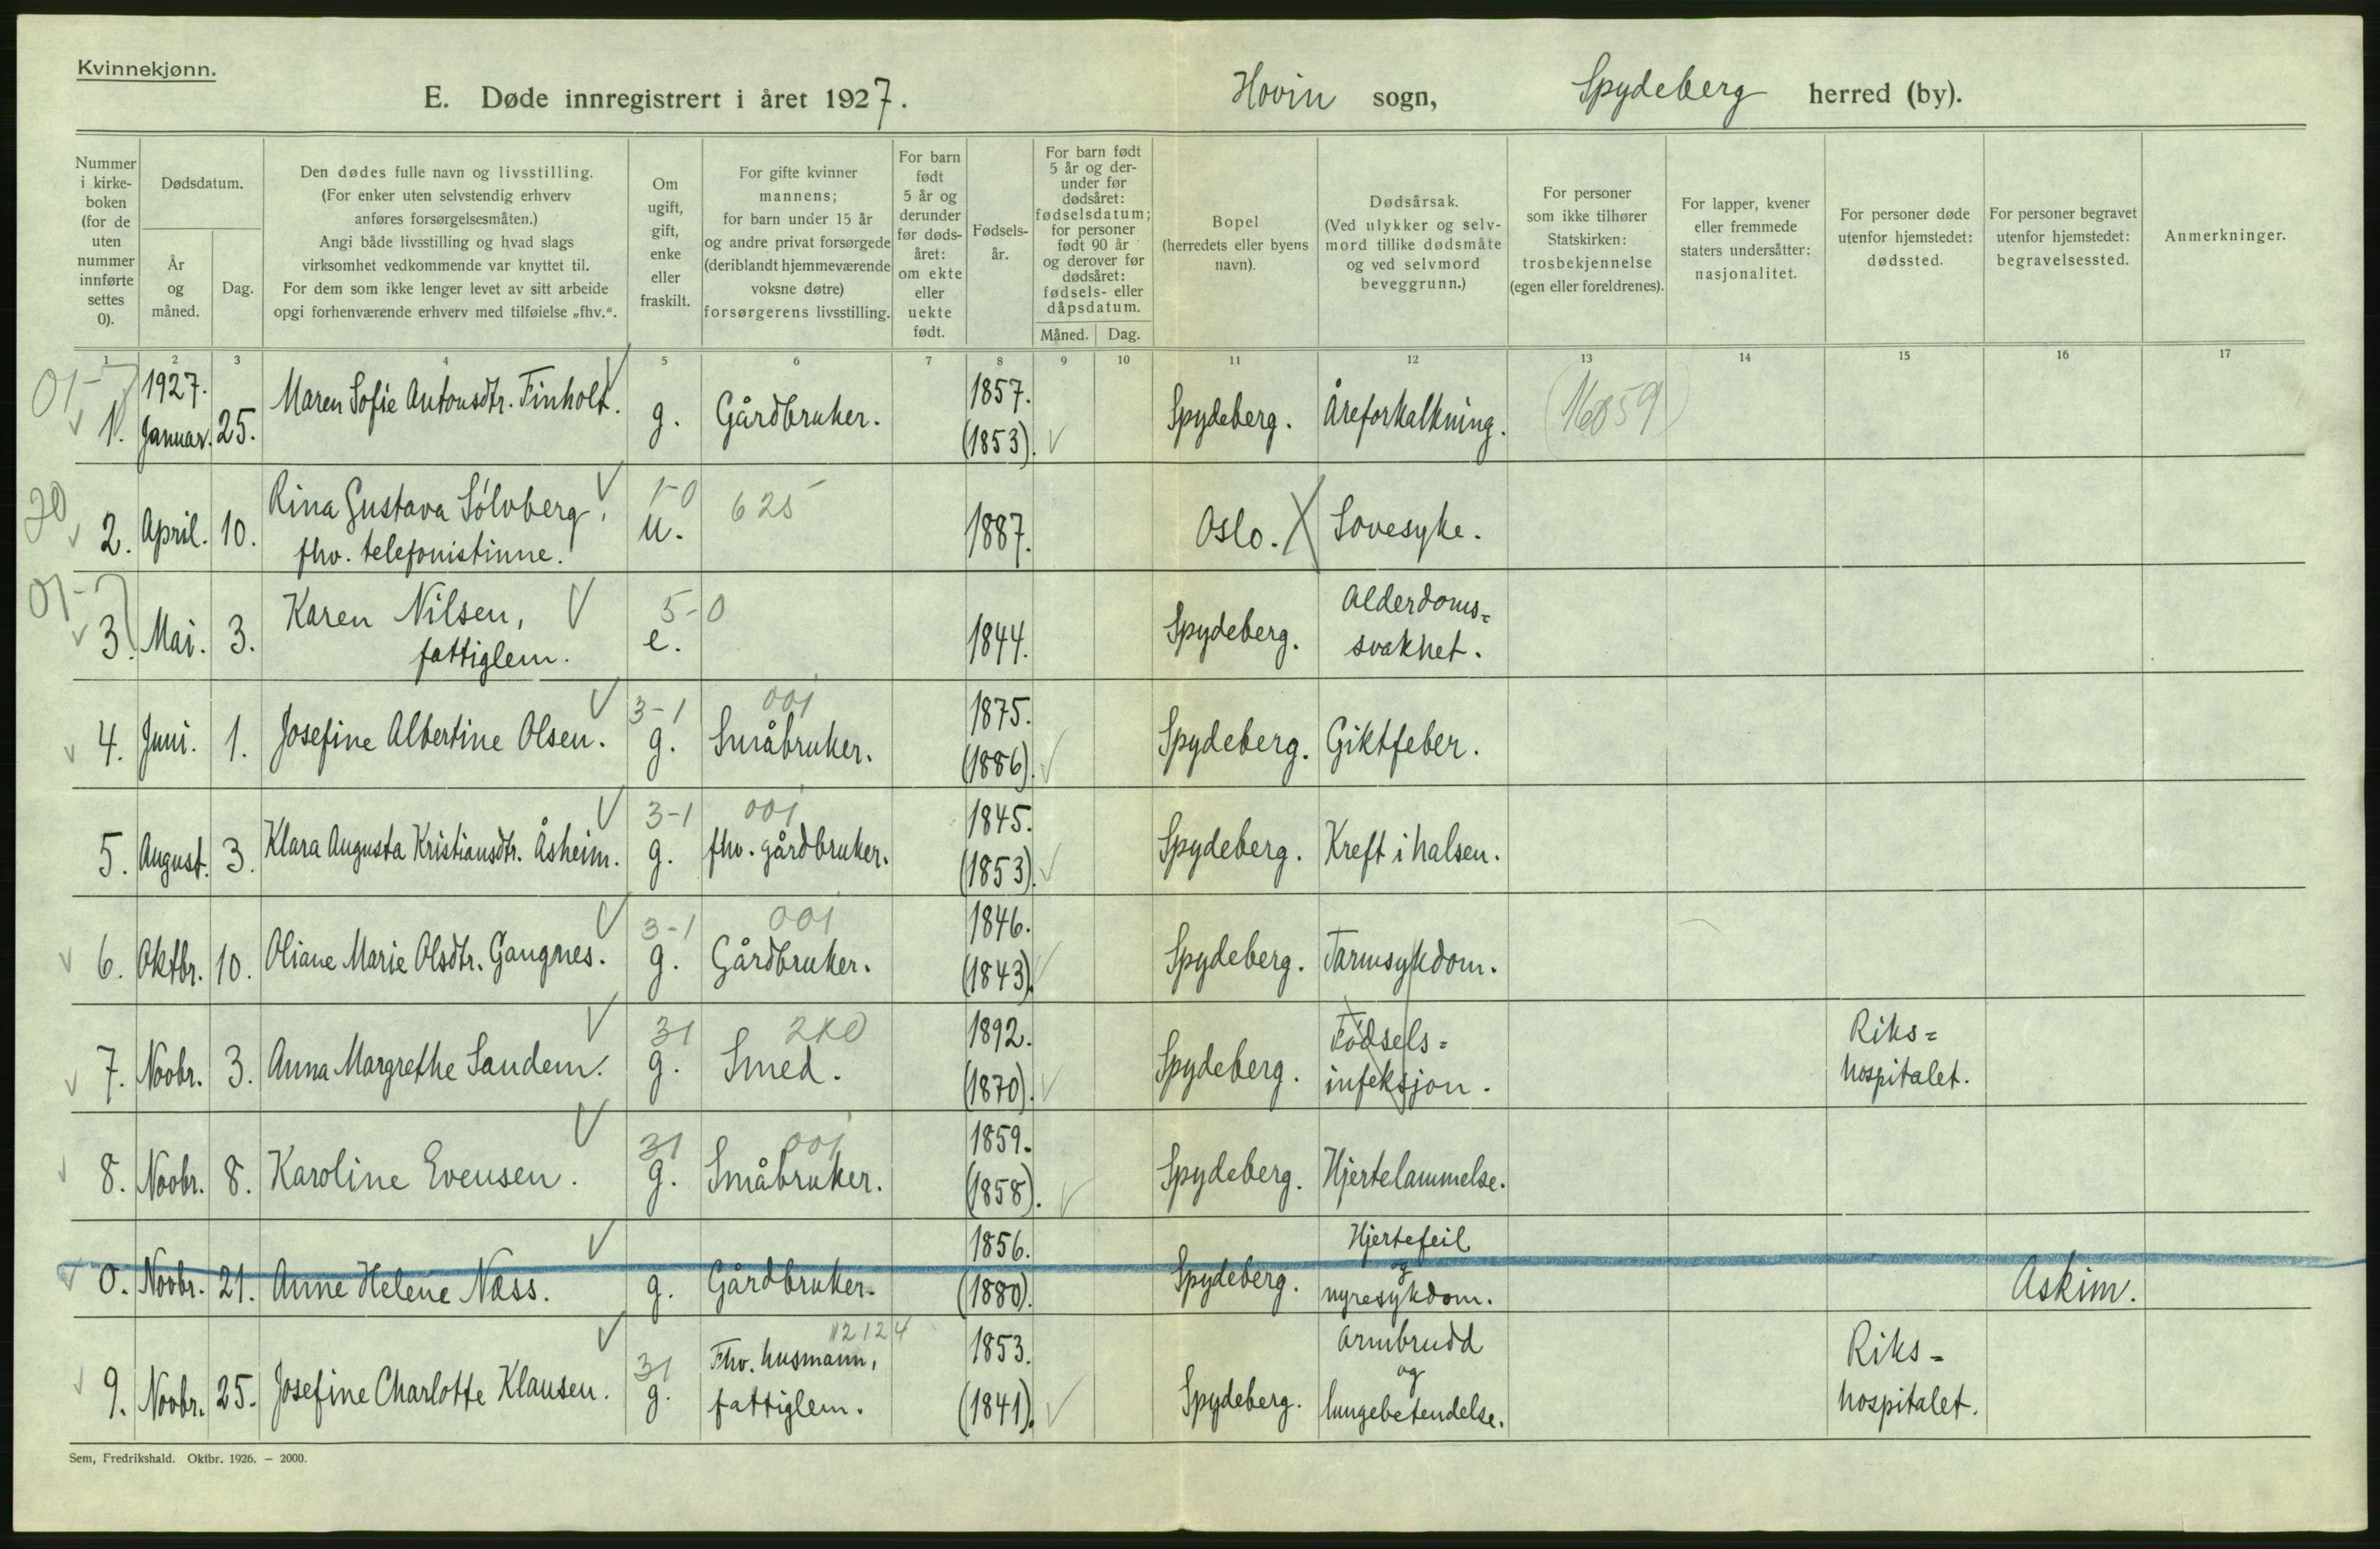 Kvinnekjønn.
E. Døde innregistrert i året 1927.
Hovin sogn, Spydeberg herred (by).
Nummer i kirke-boken (for de uten nummer innførte settes 0).
Dødsdatum.
År og måned.
Dag.
Den dødes fulle navn og livsstilling.
(For enker uten selvstendig erhverv
anføres forsørgelsesmåten.)
Angi både livsstilling og hvad slags
virksomhet vedkommende var knyttet til.
For dem som ikke lenger levet av sitt arbeide
opgi forhenværende erhverv med tilføielse „fhv.“.
Om ugift, gift, enke eller fraskilt.
For gifte kvinner
mannens;
for barn under 15 år
og andre privat forsørgede
(deriblandt hjemmeværende
voksne døtre)
forsørgerens livsstilling.
For barn født 5 år og derunder før døds-året: om ekte eller uekte født.
Fødsels-år.
For barn født
5 år og der-
under før
dødsåret:
fødselsdatum;
for personer
født 90 år
og derover før
dødsåret:
fødsels- eller
dåpsdatum.
Måned. Dag.
Bopel
(herredets eller byens
navn).
Dødsårsak.
(Ved ulykker og selv-
mord tillike dødsmåte
og ved selvmord
beveggrunn.)
For personer
som ikke tilhører
Statskirken:
trosbekjennelse
(egen eller foreldrenes).
For lapper, kvener
eller fremmede
staters undersåtter:
nasjonalitet.
For personer døde
utenfor hjemstedet:
dødssted.
For personer begravet
utenfor hjemstedet:
begravelsessted.
Anmerkninger.
1 2 3 4 5 6 7 8 9 10 11 12 13 14 15 16 17
1927.
1. Januar. 25. Maren Sofie Antonsdtr. Finholt. g. Gårdbruker. 1857. (1853). Spydeberg. Åreforkalkning. (16059)
2. April. 10. Rina Gustava Sölvberg, u. 1-0 625 1887. Oslo. Sovesyke.
fhv. telefonistinne.
3. Mai. 3. Karen Nilsen, e. 5-0 1844. Spydeberg. Alderdoms=
fattiglem. svakhet.
4. Juni. 1. Josefine Albertine Olsen. 3-1 g. 001 Småbruker. 1875. (1886). Spydeberg. Giktfeber.
5. August. 3. Klara Augusta Kristiansdtr. Åsheim. 3-1 g. 001 fhv. gårdbruker. 1845. (1853). Spydeberg. Kreft i halsen.
6. Oktbr. 10. Oliane Marie Olsdtr. Gangnes. 3-1 g. 001 Gårdbruker. 1846. (1843). Spydeberg. Tarmsykdom.
7. Novbr. 3. Anna Margrethe Sandem. 31 g. Smed. 1892. (1870). Spydeberg. Födsels= Riks=
infeksjon. hospitalet.
8. Novbr. 8. Karoline Evensen. 31 g. 001 Småbruker. 1859. (1858). Spydeberg. Hjertelammelse.
0. Novbr. 21. Anne Helene Næss. g. Gårdbruker. 1856. (1880). Spydeberg. Hjertefeil
og
nyresykdom. Askim.
9. Novbr. 25. Josefine Charlotte Klausen. 31 g. Fhv. husmann, 1853. Armbrudd Riks=
og
fattiglem. (1841). Spydeberg. lungebetendelse. hospitalet.
Sem, Fredrikshald. Oktbr. 1926. – 2000.